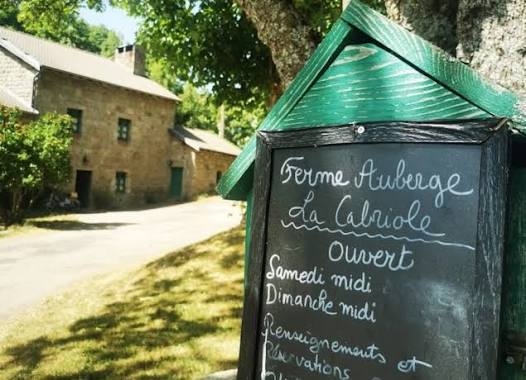 Ferme Auberge
La Cabriole
Ouvert
Samedi midi
Dimanche midi
Renseignements et
Réservations